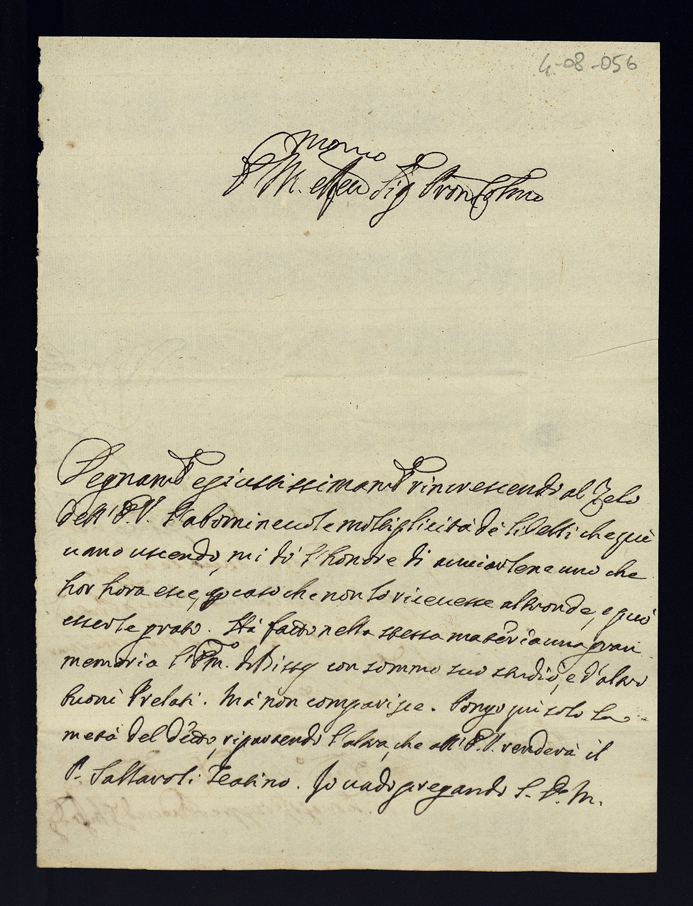 4-08-056
P. M. e Sig. Pron Colmo
Degnam.te e giustissimam.te rincrescendo al Zelo
dell' P.V. l'abominevole moltiplicità de' libelli che quì
vanno uscendo, mi dò l'honore di avviartene uno che
hor hora esce, caso che non lo ricevesse altronde, e può
esserle grato. Hà fatto nella stessa materia una gran
memoria l' Em. di Bissy con sommo suo studio, e d'altri
buoni Prelati. Mà non comparisce. Pongo qui solo la
metà del detto, ripartendo l'altra, che all' P.V. renderà il
P. Teatino. Io vado pregando S. D. M.